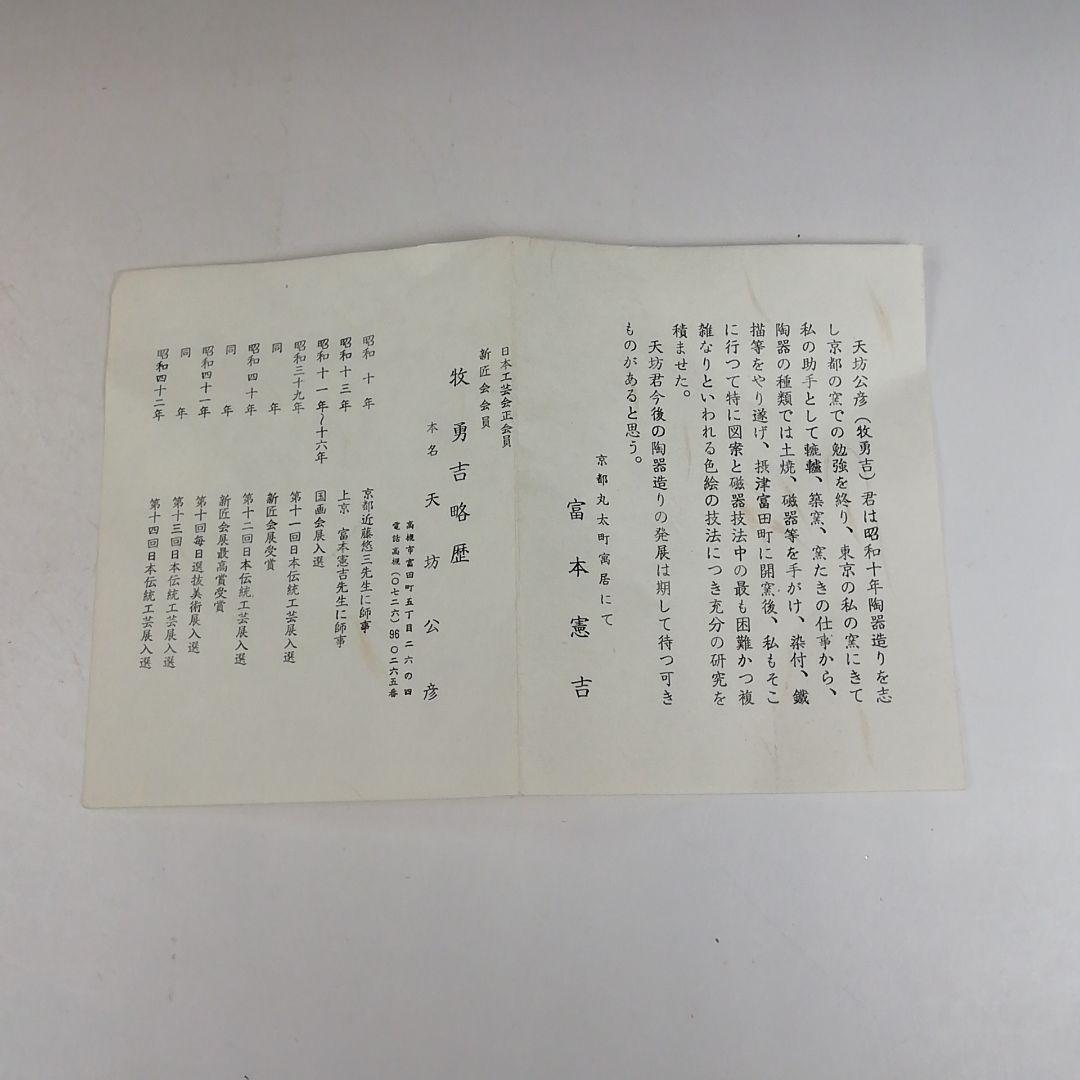 天坊公彦（牧勇吉）君は昭和十年陶器造りを志
し京都の窯での勉強を終り、東京の私の窯にきて
私の助手として轆轤、築窯、窯たきの仕事から、
陶器の種類では土焼、磁器等を手がけ、染付、鐵
描等をやり遂げ、摂津富田町に開窯後、私もそこ
に行つて特に図案と磁器技法中の最も困難かつ複
雑なりといわれる色絵の技法につき充分の研究を
積ませた。
天坊君今後の陶器造りの発展は期して待つ可き
ものがあると思う。
京都丸太町寓居にて
富本憲吉
日本工芸会正会員
新匠会会員
牧勇吉略歴
本名 天坊公彦
高槻市富田町五丁目二六の四
電話高槻（〇七二六）96〇二六五番
昭和十年 京都近藤悠三先生に師事
昭和十三年 上京 富本憲吉先生に師事
昭和十一年～十六年 国画会展入選
昭和三十九年 第十一回日本伝統工芸展入選
同年 新匠会展受賞
昭和四十年 第十二回日本伝統工芸展入選
同年 新匠会展最高賞受賞
昭和四十一年 第十回毎日選抜美術展入選
同年 第十三回日本伝統工芸展入選
昭和四十二年 第十四回日本伝統工芸展入選